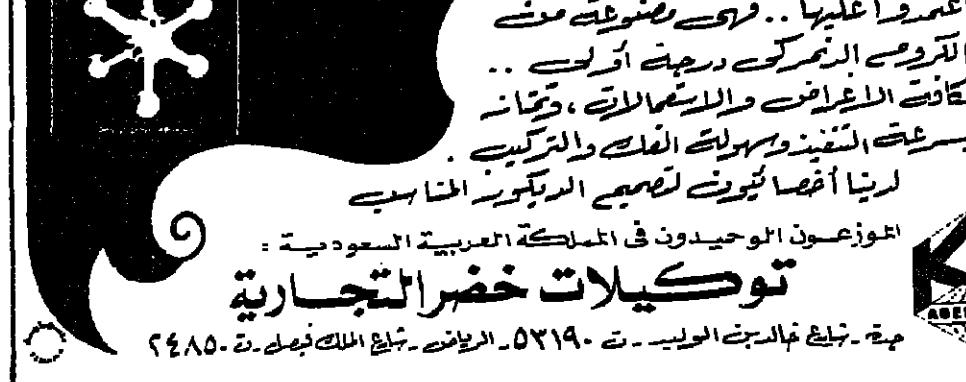 اعتمدوا عليها .. فهي مصنوعة من
الكروم الدنمركي درجة أولى ..
لكافة الاغراض والاستعمالات ، وتمتاز
بسرعة التنفيذ وسهولة الفك والتركيب .
لدينا أخصائيون لتصميم الديكور المناسب
الموزعون الوحيدون في المملكة العربية السعودية :
توكيلات خضر التجارية
جدة - شارع خالد بن الوليد - ت ٥٣١٩٠ - الرياض - شارع الملك فيصل - ت ٢٤٨٥٠